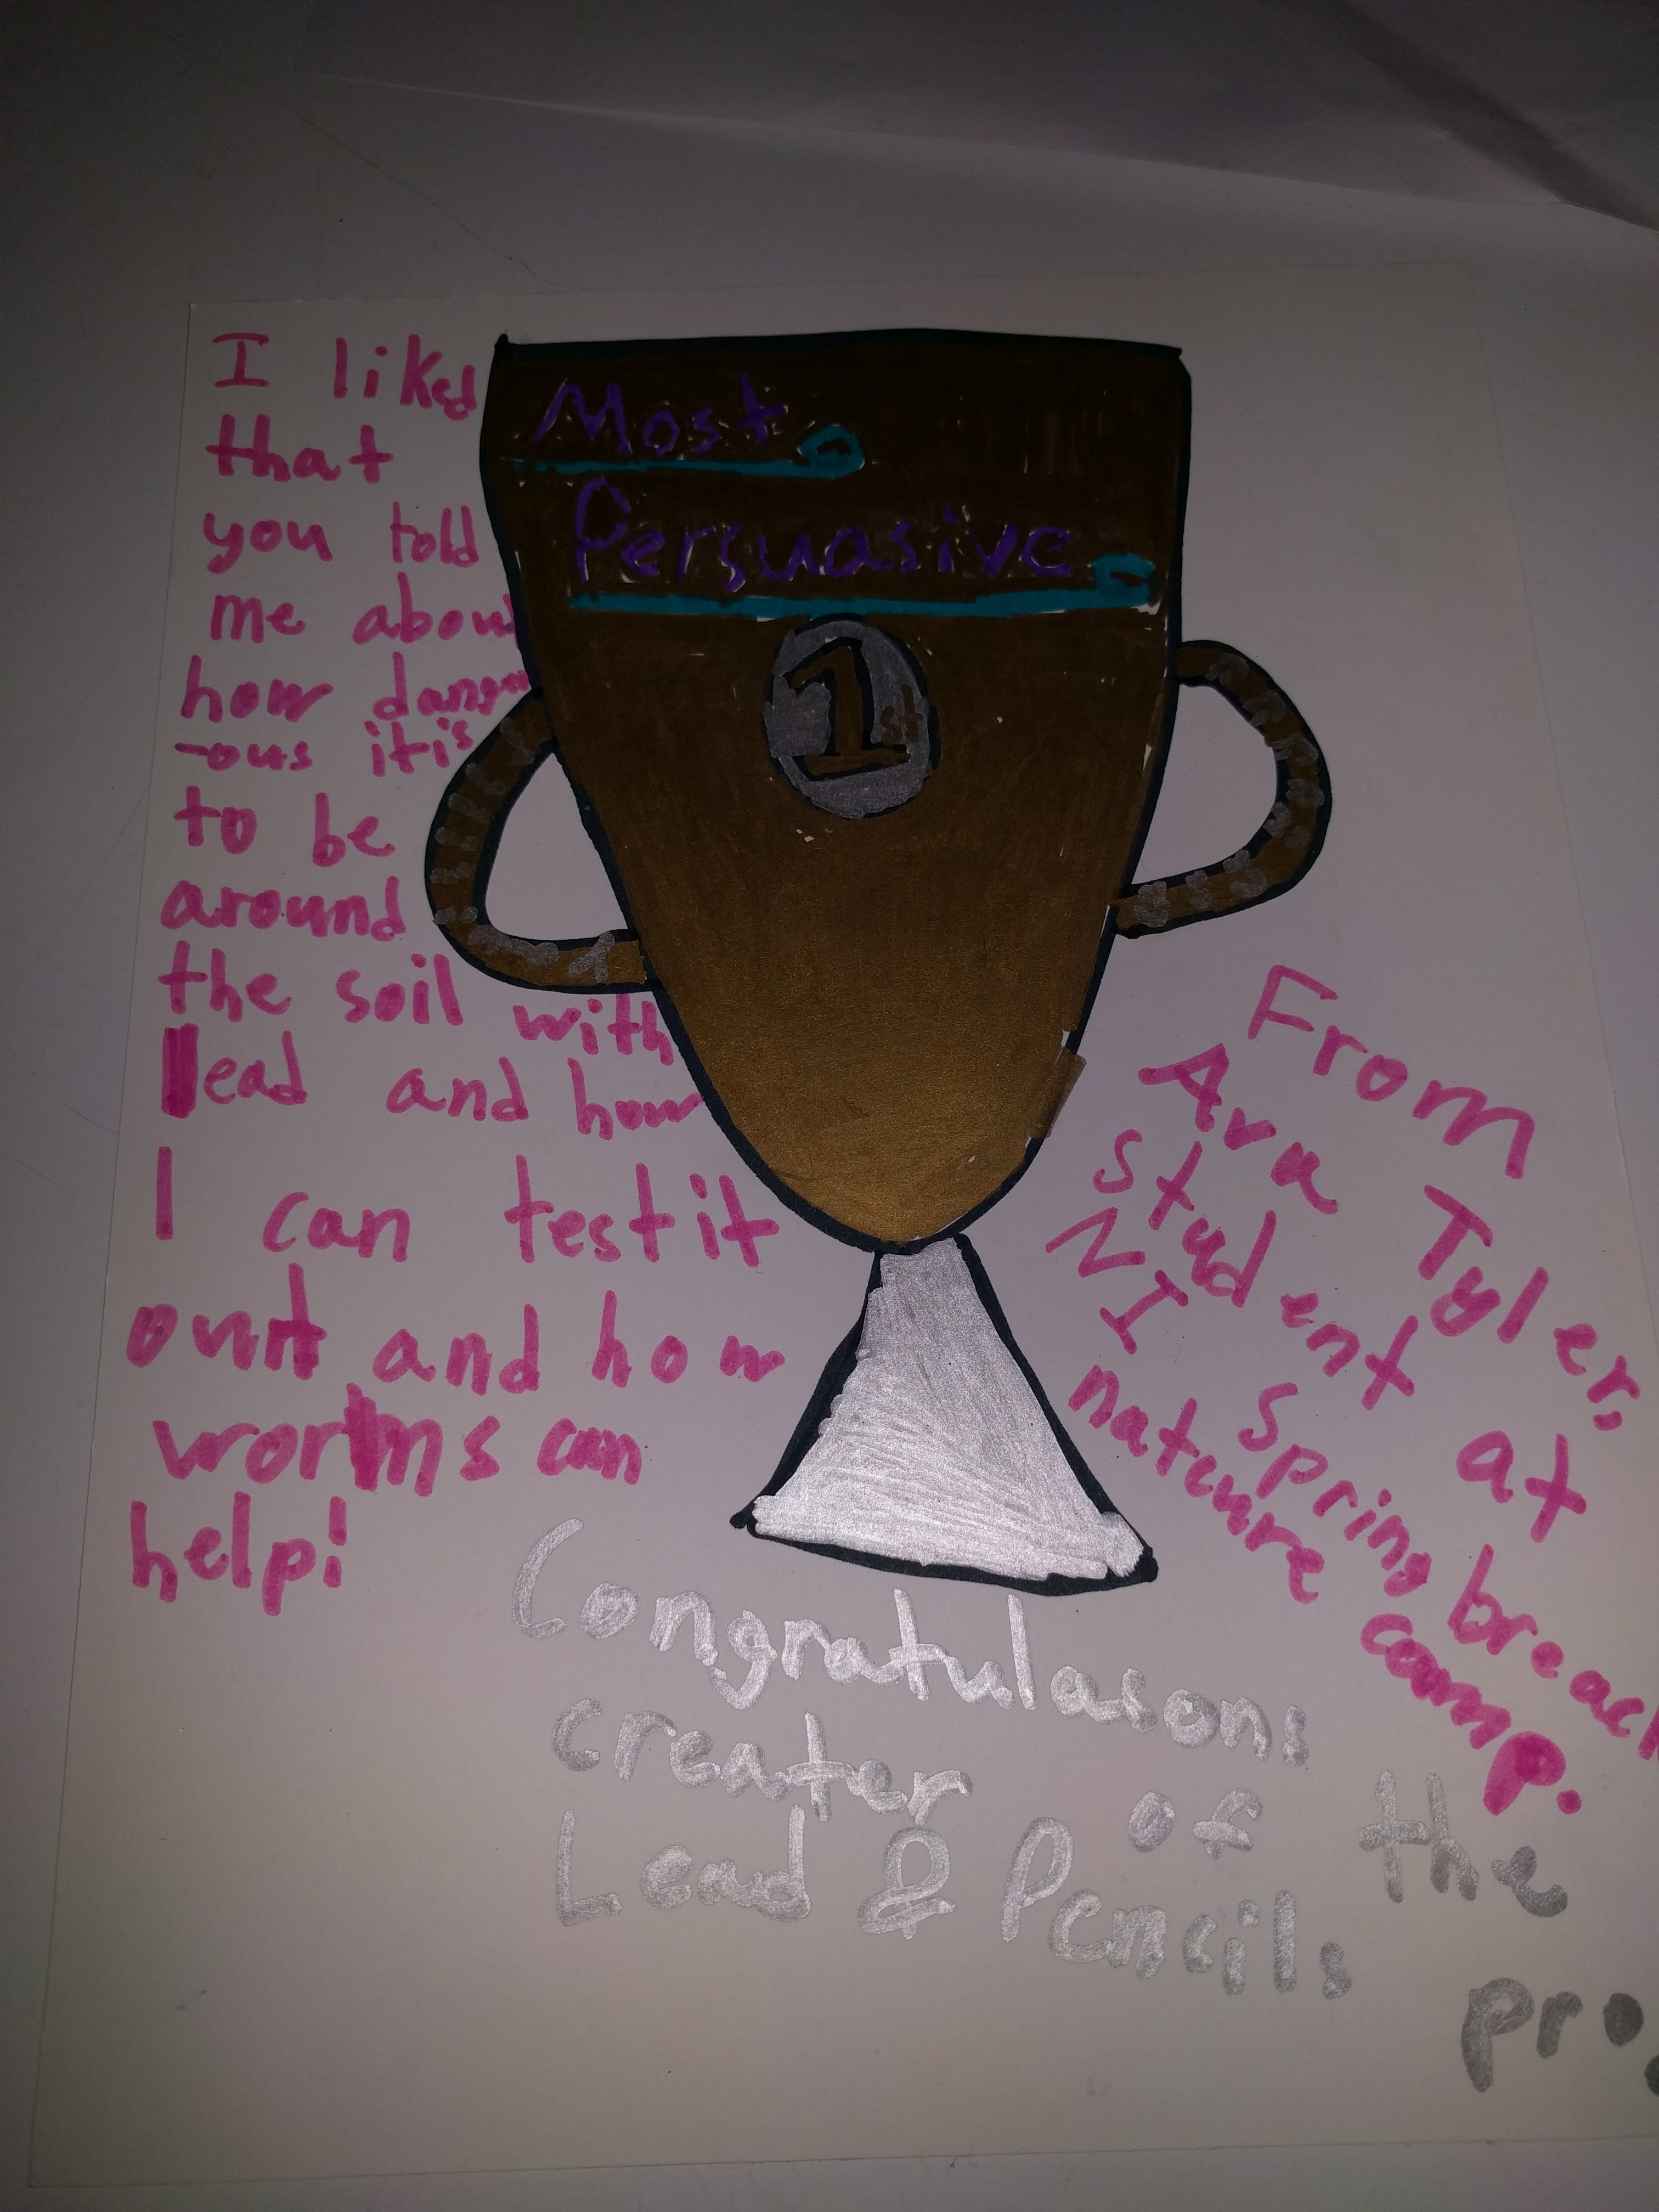 Most
Persuasive
1st
I liked
that
you told
me about
how danger
-ous it is
to be
around
the soil with
lead and how
I can test it
ount and how
worms can
help!
From
Ava Tyler,
student at
NI Spring breack
nature camp.
Congratulasons
creater of the
Lead & Pencils